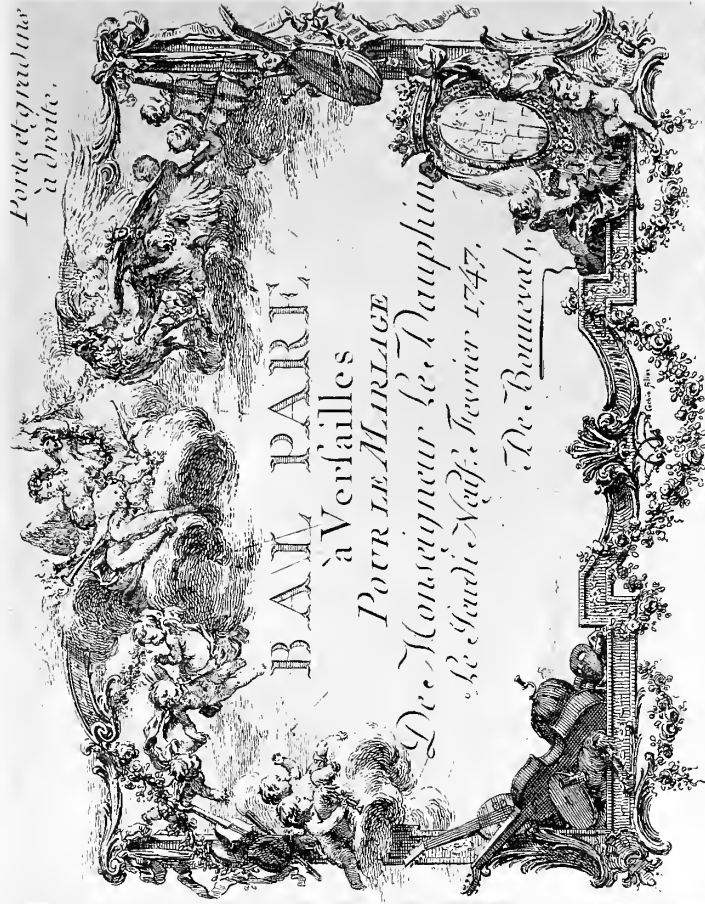 Porte et gradins
à droite.
BAL PARÉ
à Verſailles
POUR LE MARIAGE
De Monseigneur Le Dauphin
Le Jeudi Neuf. Fevrier 1747.
De Bonneval.
Cochin filius